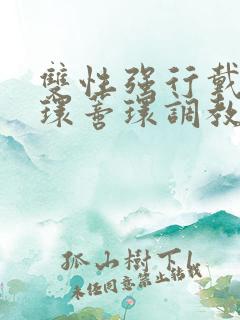 雙性強行戴
環蒂環調教
孤山樹下l
未经同意禁止转载